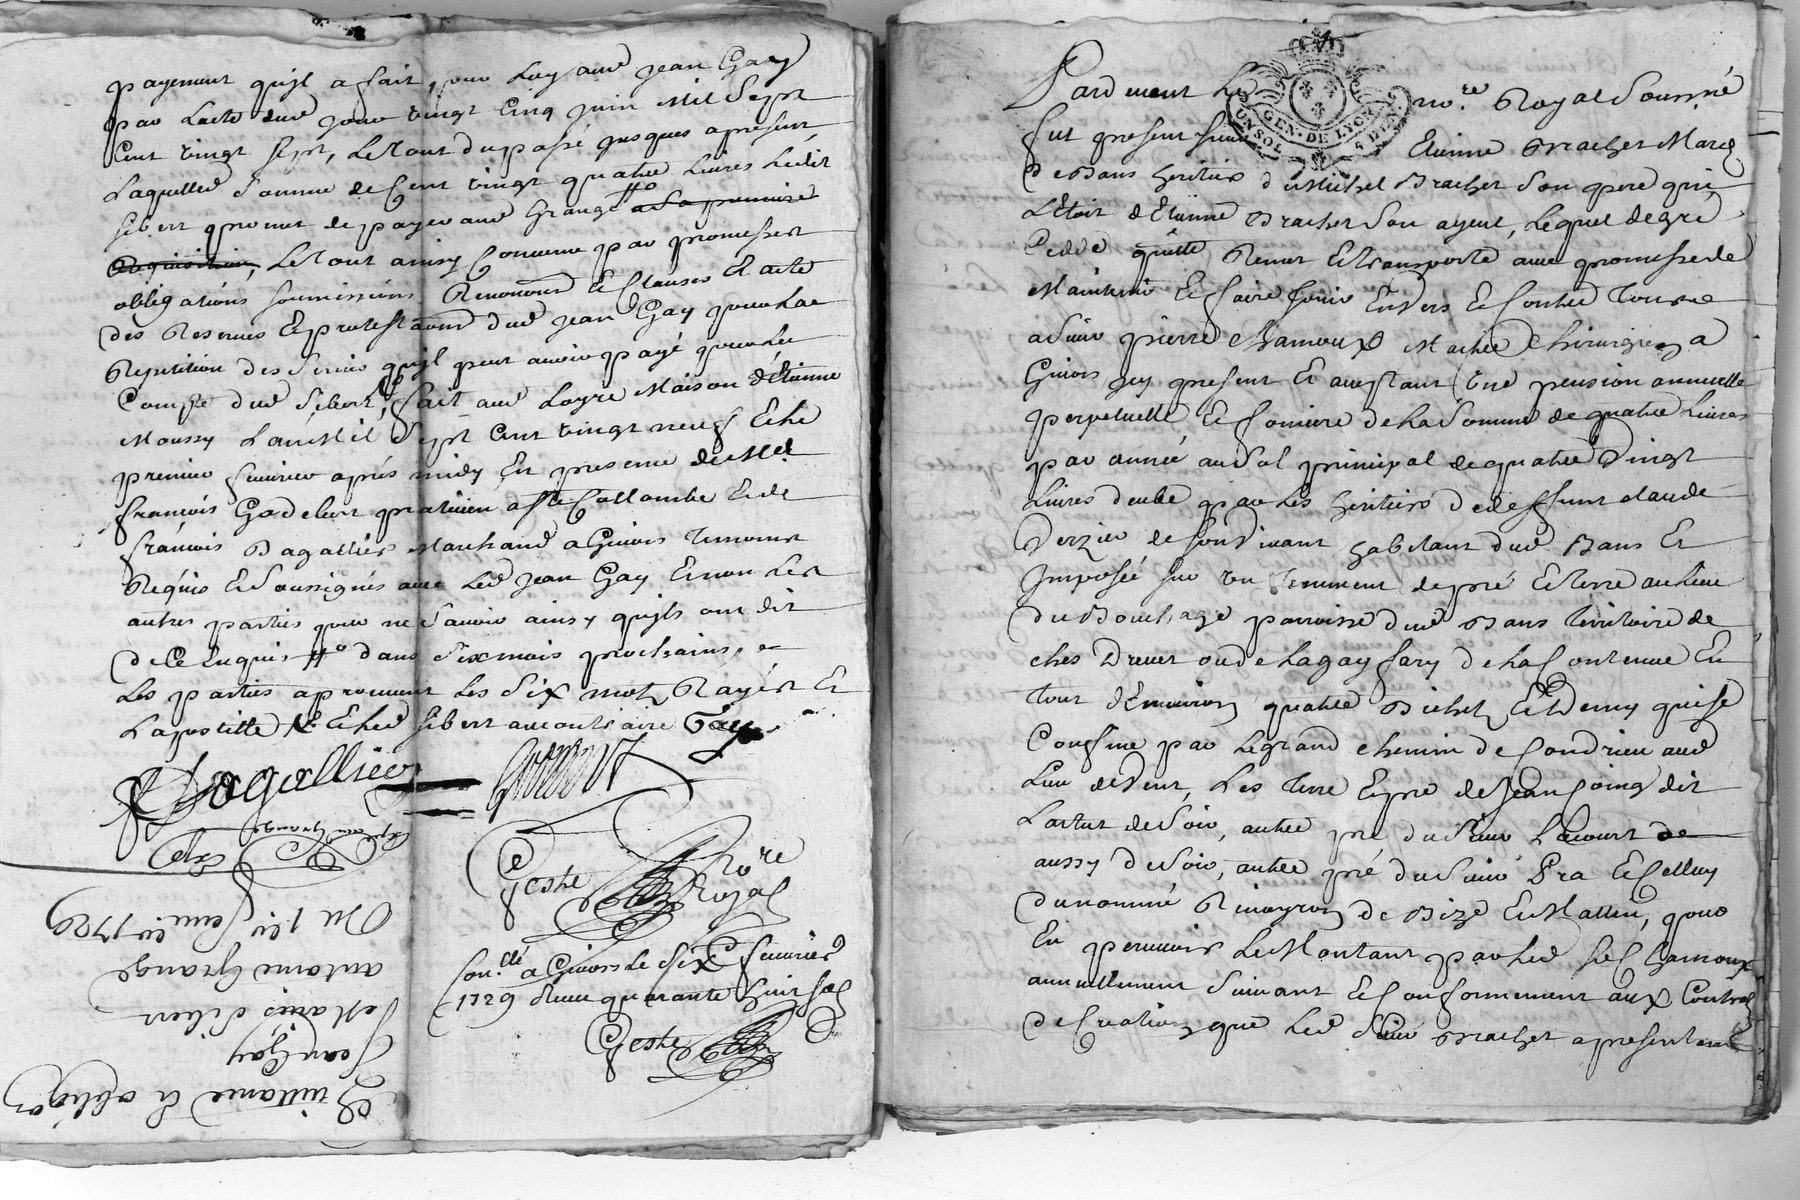 payement qujl a fait pour Luy aud jean Gay
par Lacte dud jour vingt cinq juin Mil Sept
Cent vingt sept, Letout du passé jusques apresent
Laquelled somme de Cent vingt quatre Livres Ledit
sibert promet de payer aud Grange #to a la premiere
Requisition, Letout ainsy Convenu par promesses
obligations soumissions Renoncons & Clauses Et acte
des Reserves Et protestaons dud jean Gay pour La
Repetition des servis qujl peut avoir payé pour Le
Compte dud Sibert, fait aud Loyre Maison d'Etienne
Moussy Lan Mil Sept Cent vingt neuf Et le
premier feuvrier aprés midy En presence de Mes
francois Godebert praticien a ste Collombe Et de
françois Dagallier Marchand a Givors Temoins
Requis Et Soussignés avec Led jean Gay Et non Les
autres parties pour ne Savoir ainsy qujls ont dit
de Ce Enquis #to dans Six mois prochains, et
Les parties aprouvent Les Six mots Rayés Et
Lapostille Et Led sibert au contraire Gay
f Dagallier
Godebert
Geste Nore Royal
Con.lé a Givors Le Six feuvrier
1729 Receu quarante huit sols
Geste
Quittance Et obligaon
Jean Gay
Denis Siber
antoine Grange
Du 1er feuvrier 1729
Exp
Expé. au Grange
GEN. DE LYON
UN SOL 4 DEN
Pardevant Le no.re Royal Soussigné
fut present sieur Etienne Brachet March
de Bans heritier de Michel Brachet Son pere qui
L'Etoit d'Etienne Brachet Son ayeul, Lequel de gré
Cedde quitte Remet Et transporte avec promesse de
Maintenir Et faire Jouir Envers Et Contre Tous
a Sieur pierre Chamoux Maitre Chirurgien a
Givors jcy present Et aceptant Une pension annuelle
perpetuelle Et fonciere de La Somme de quatre Livres
par année au Sol principal de quatre Vingt
Livres deube par Les heritiers de deffunt Claude
Verzier de son Vivant habitant dud Bans Et
Imposée sur un Tenement de pré Et terre au Lieu
du Bouchage parroisse dud Bans Territoire de
ches Drevet ou de La gay fary de La Contenue En
Tout d'Environ quatre Bichets Et Demy qui se
Confine par Le grand chemin de Condrieu aud
Lieu de Vent, Les Terre Et pré de Jean Coing dit
Lartut de Soir, autre pré du Sieur Lacourt de
aussy de Soir, autre pré du Sieur Pra Et Celluy
du nommé Rivoyron de Bize Et Matin, pour
En percevoir Le Montant par Led Sr Chamoux
annuellement Suivant Et Conformement aux Contrats
de Creation que Led Sieur Brachet a presentement